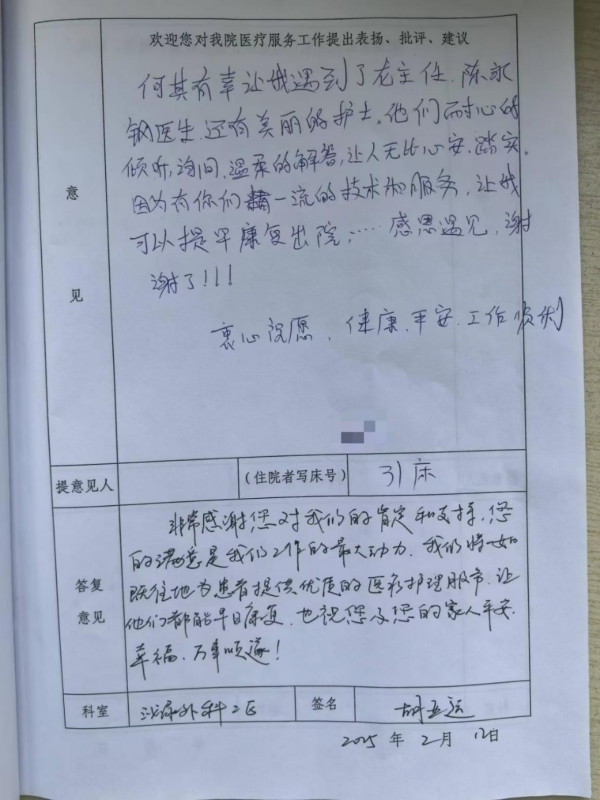 欢迎您对我院医疗服务工作提出表扬、批评、建议
何其有幸让我遇到了龙主任、陈永
钢医生,还有美丽的护士。他们耐心的
倾听,询问,温柔的解答,让人无比心安、踏实。
因为有你们一流的技术和服务,让我
可以提早康复出院……感恩遇见,谢
谢了!!!
衷心祝愿、健康、平安、工作顺利
意见
提意见人
(住院者写床号)
31床
非常感谢您对我们的肯定和支持,您
的满意是我们工作的最大动力。我们将一如
既往地为患者提供优质的医疗护理服务,让
他们都能早日康复,也祝您及您的家人平安
幸福、万事顺遂!
答复
意见
科室
泌尿外科二区
签名
胡亚运
2025年2月12日